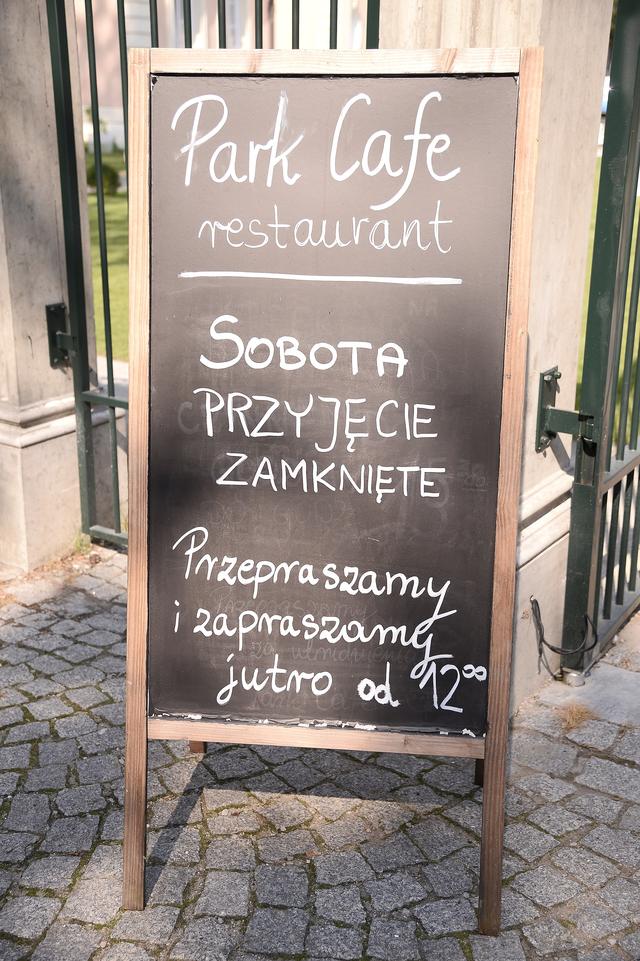 Park Cafe
restaurant
SOBOTA
PRZYJĘCIE
ZAMKNIĘTE
Przepraszamy
i zapraszamy
jutro od 12⁰⁰